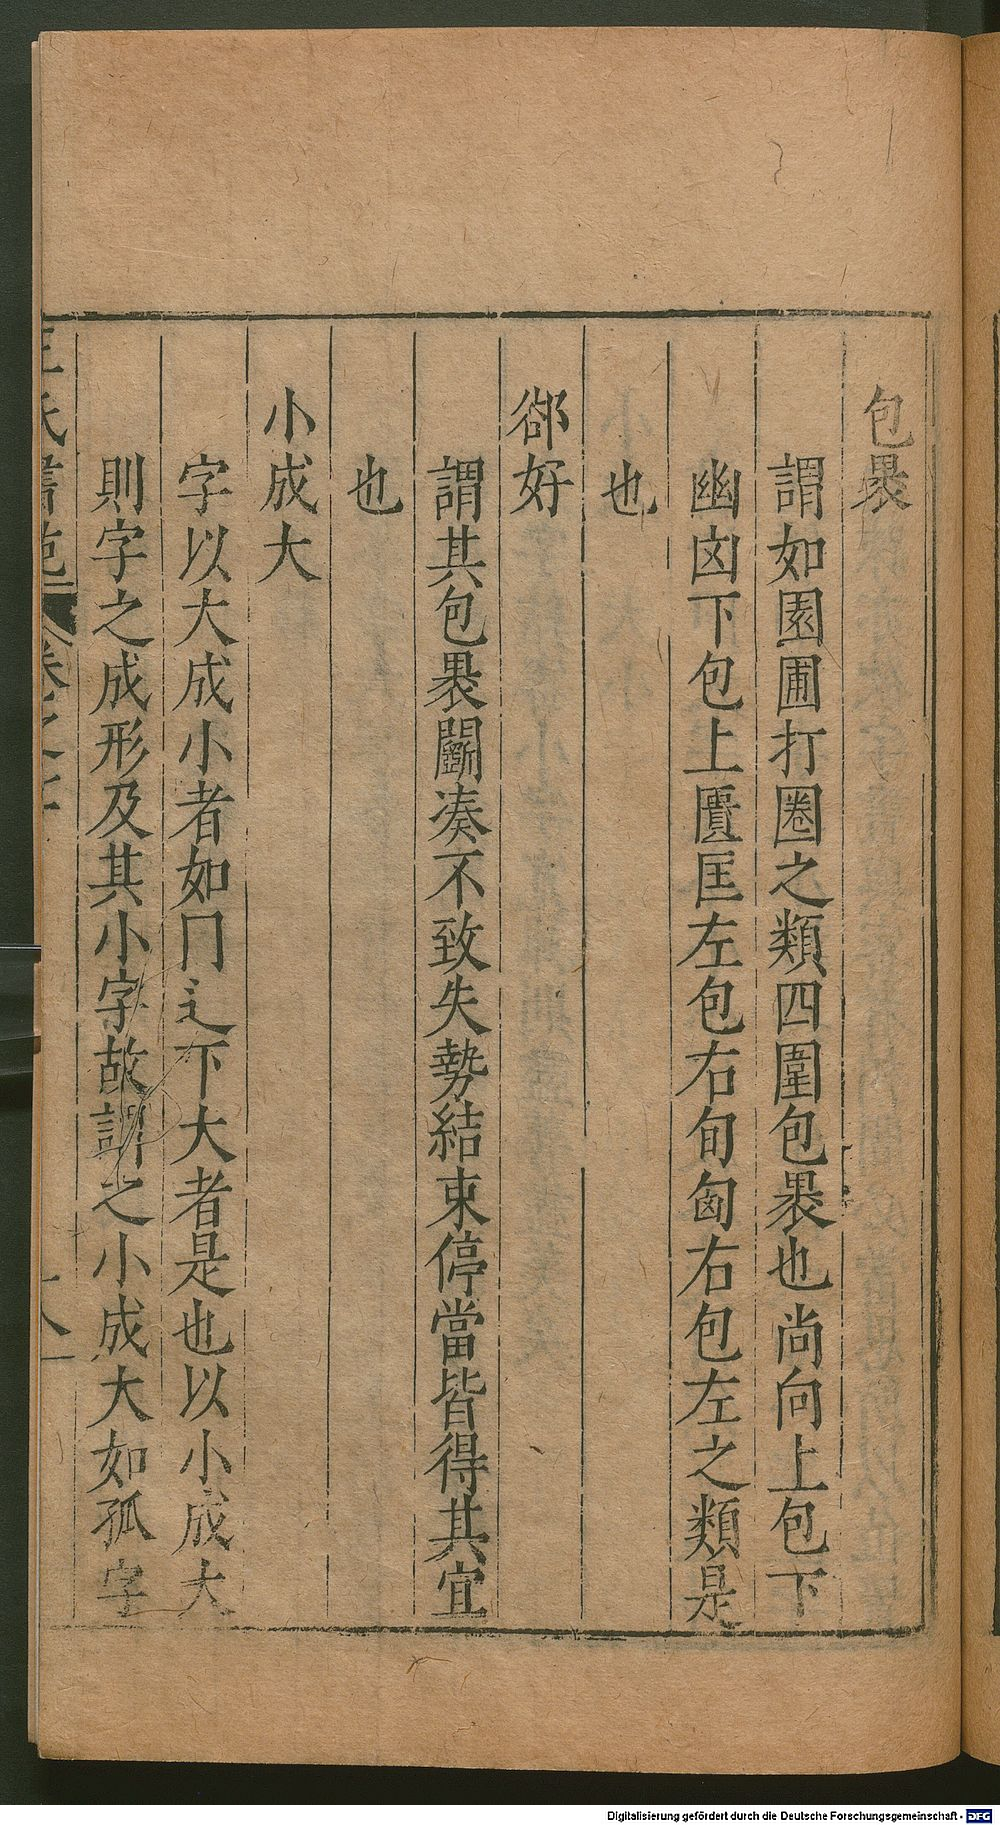 包裹
謂如園圃打圈之類四圍包裹也尚向上包下
幽凶下包上匱匡左包右旬匈右包左之類是
也
郤好
謂其包裹鬭湊不致失勢結束停當皆得其宜
也
小成大
字以大成小者如冂辶下大者是也以小成大
則字之成形及其小字故謂之小成大如孤字
氏書
卷之
Digitalisierung gefördert durch die Deutsche Forschungsgemeinschaft - DFG